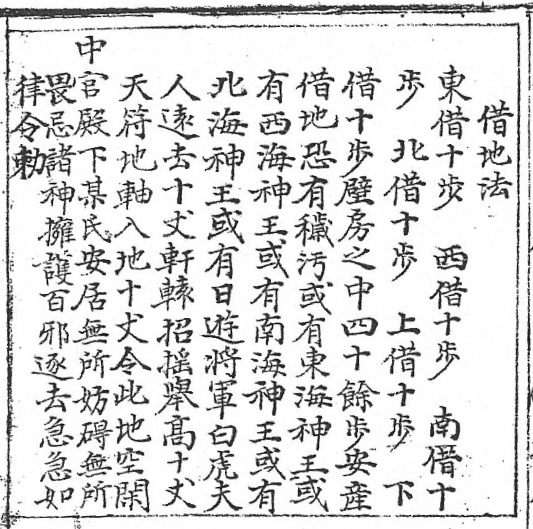 借地法
東借十歩 西借十歩 南借十
歩 北借十歩 上借十歩 下
借十歩壁房之中四十餘歩安産
借地恐有穢汚或有東海神王或
有西海神王或有南海神王或有
北海神王或有日遊將軍白虎夫
人遠去十丈軒轅招揺舉髙十丈
天符地軸入地十丈令此地空閑
中官殿下某氏安居無所妨碍無所
畏忌諸神擁護百邪逐去急急如
律令勅